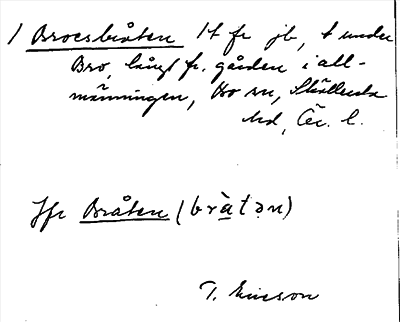 1 Brocsbråten 1t fr jb, t under
Bro, långt fr. gården i all-
männingen, Bo sn, Skyllersta
hd, Ör. l.
Jfr Bråten (bråtən)
T. Ericson